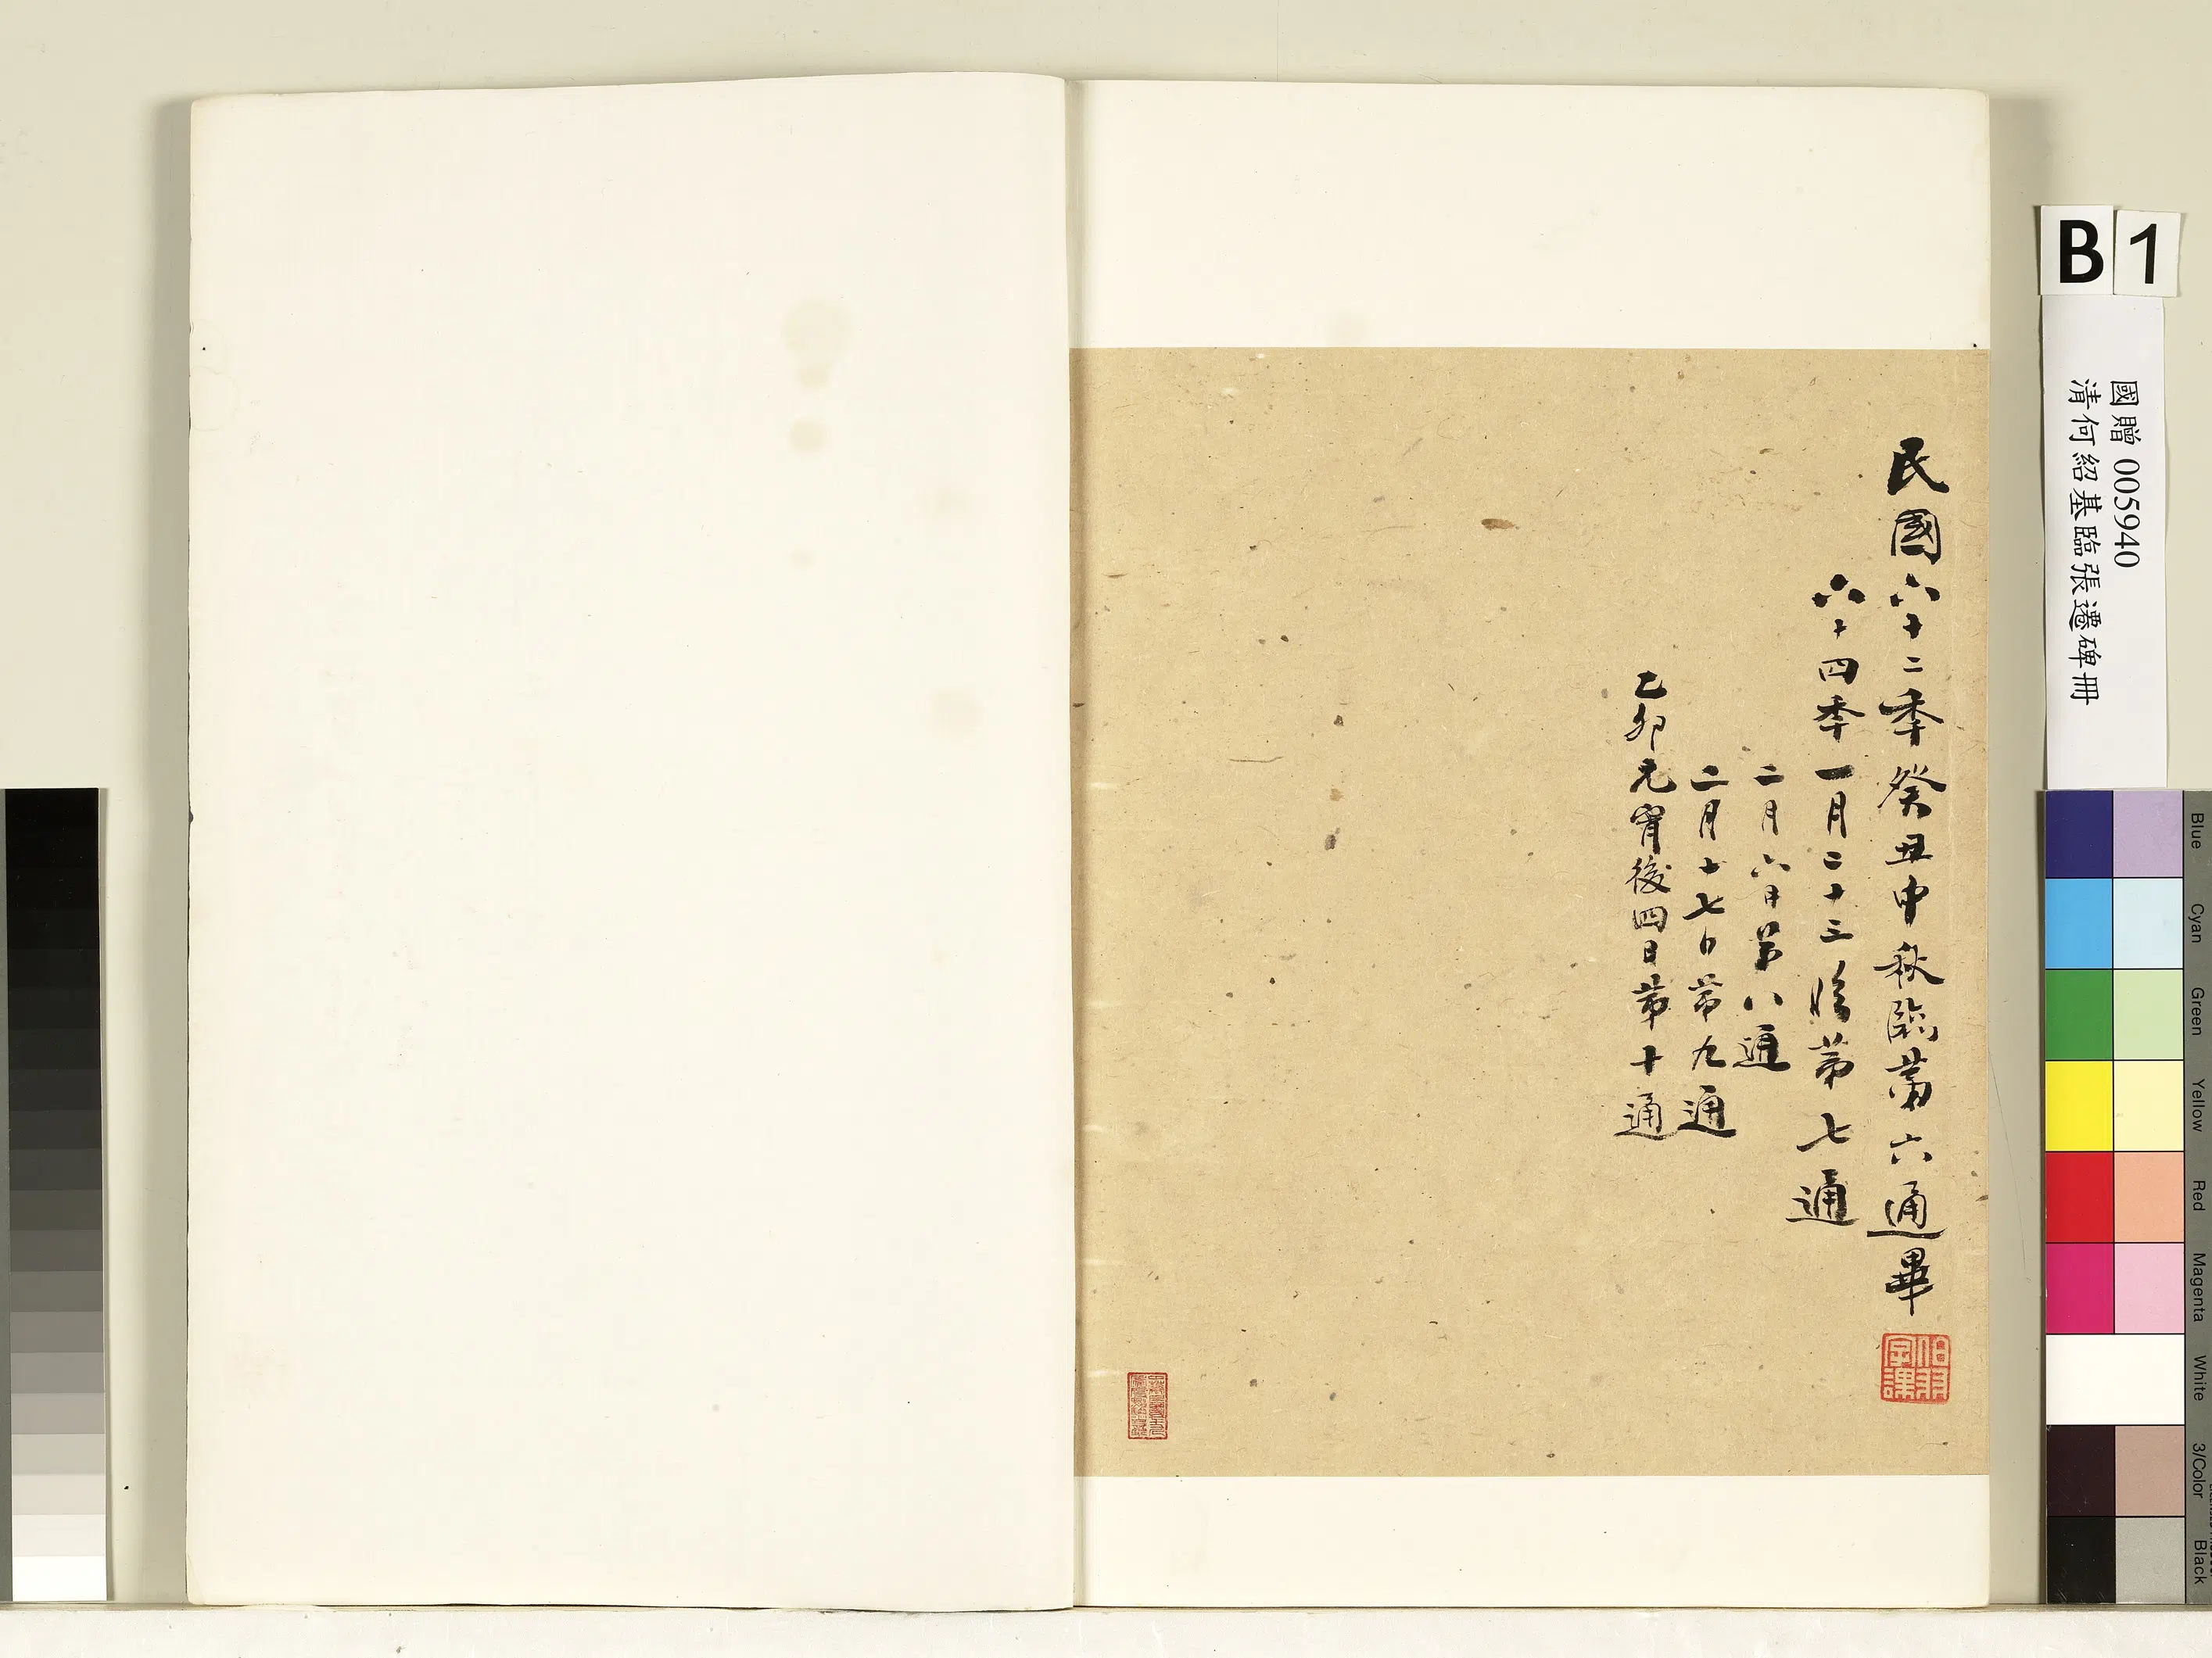 B 1
國贈 005940
清何紹基臨張遷碑冊
民國六十二季癸丑中秋臨第六通畢
伯羽字課
六十四季一月二十三臨第七通
二月六日第八通
二月十七日第九通
乙卯元宵後四日第十通
Blue
Cyan
Green
Yellow
Red
Magenta
White
3/Color
Black